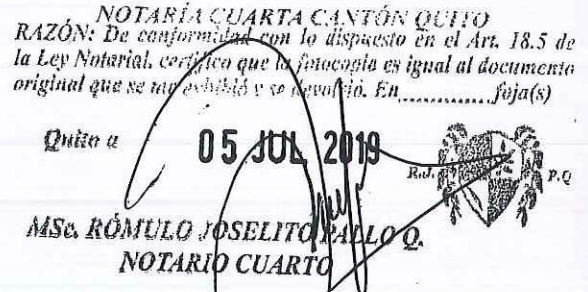 NOTARÍA CUARTA CANTÓN QUITO
RAZÓN: De conformidad con lo dispuesto en el Art. 18.5 de
la Ley Notarial, certifico que la fotocopia es igual al documento
original que se me exhibió y se devolvió. En.............foja(s)
Quito a 05 JUL 2019
R.J. P.Q
MSc. RÓMULO JOSELITO PALLO Q.
NOTARIO CUARTO